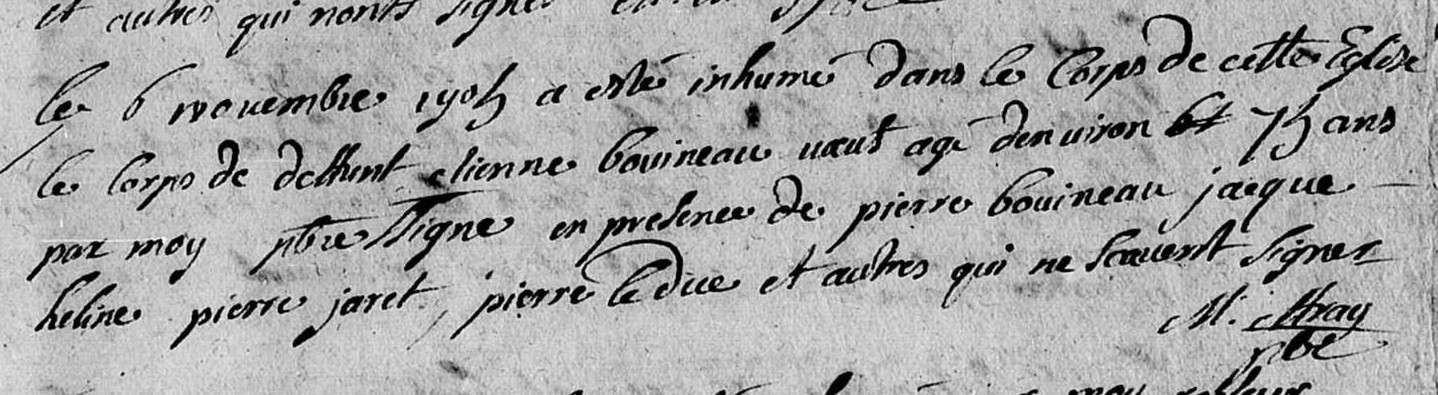 et autres qui nonts signer
le 6 novembre 1705 a esté inhumé dans le Corps de cette Eglise
le Corps de deffunt etienne bouineau veuf agé denviron 75 ans
par moy pbre signe en presence de pierre bouineau jacque
heline pierre jaret, pierre leduc et autres qui ne scavent signer
M.
pbe
moy